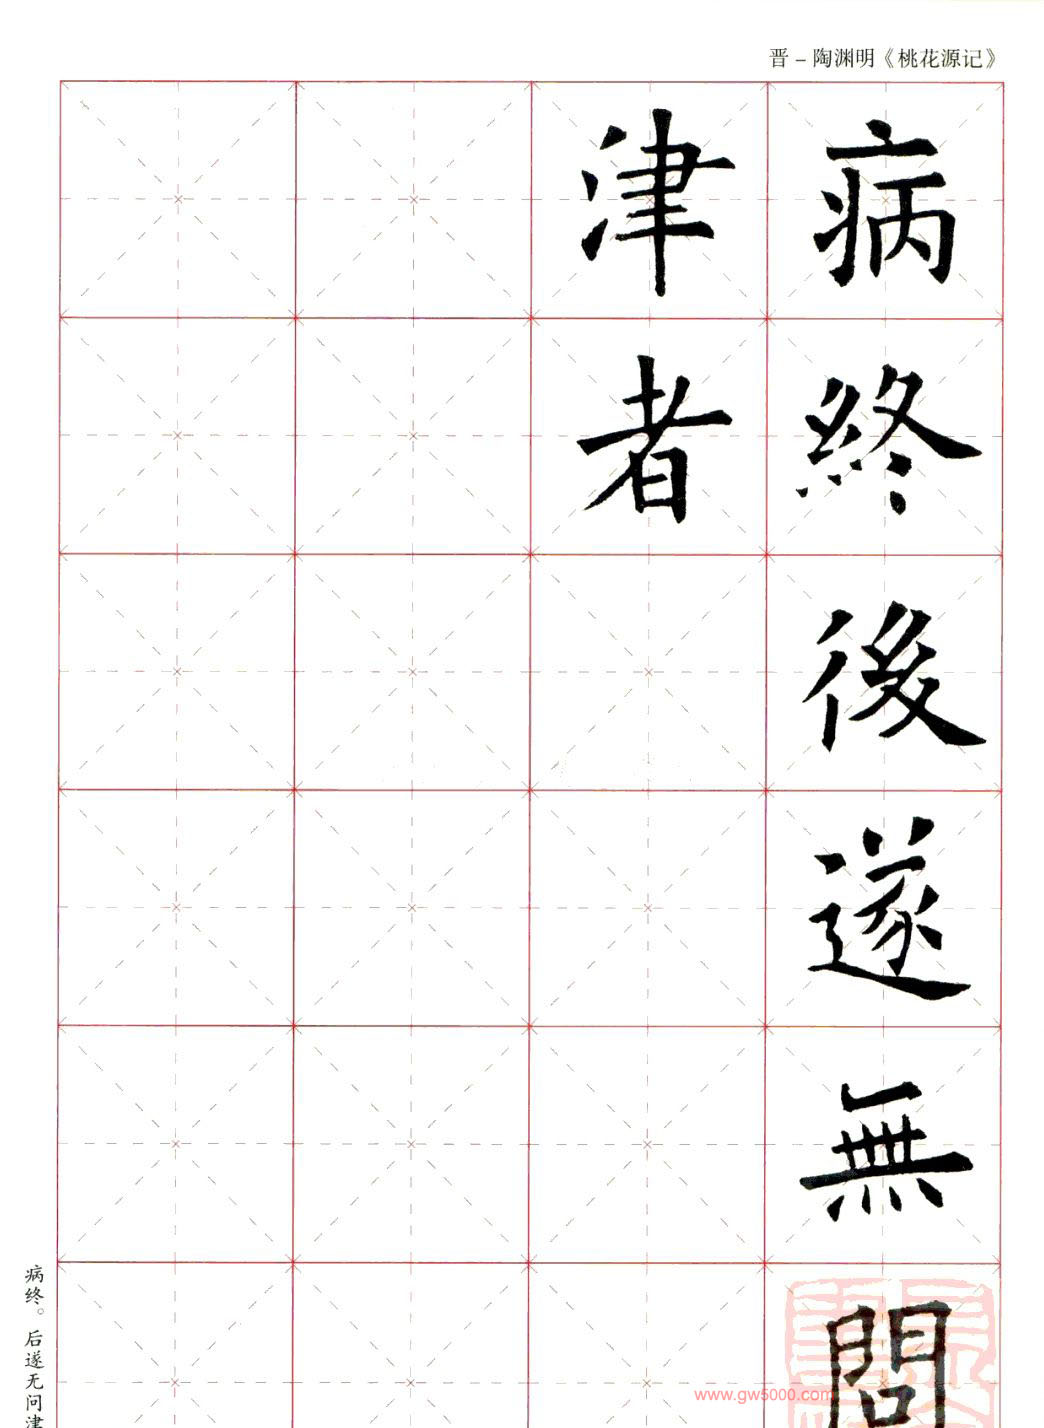 晋－陶渊明《桃花源记》
病終後遂無問
津者
病终。后遂无问津
www.gw5000.com